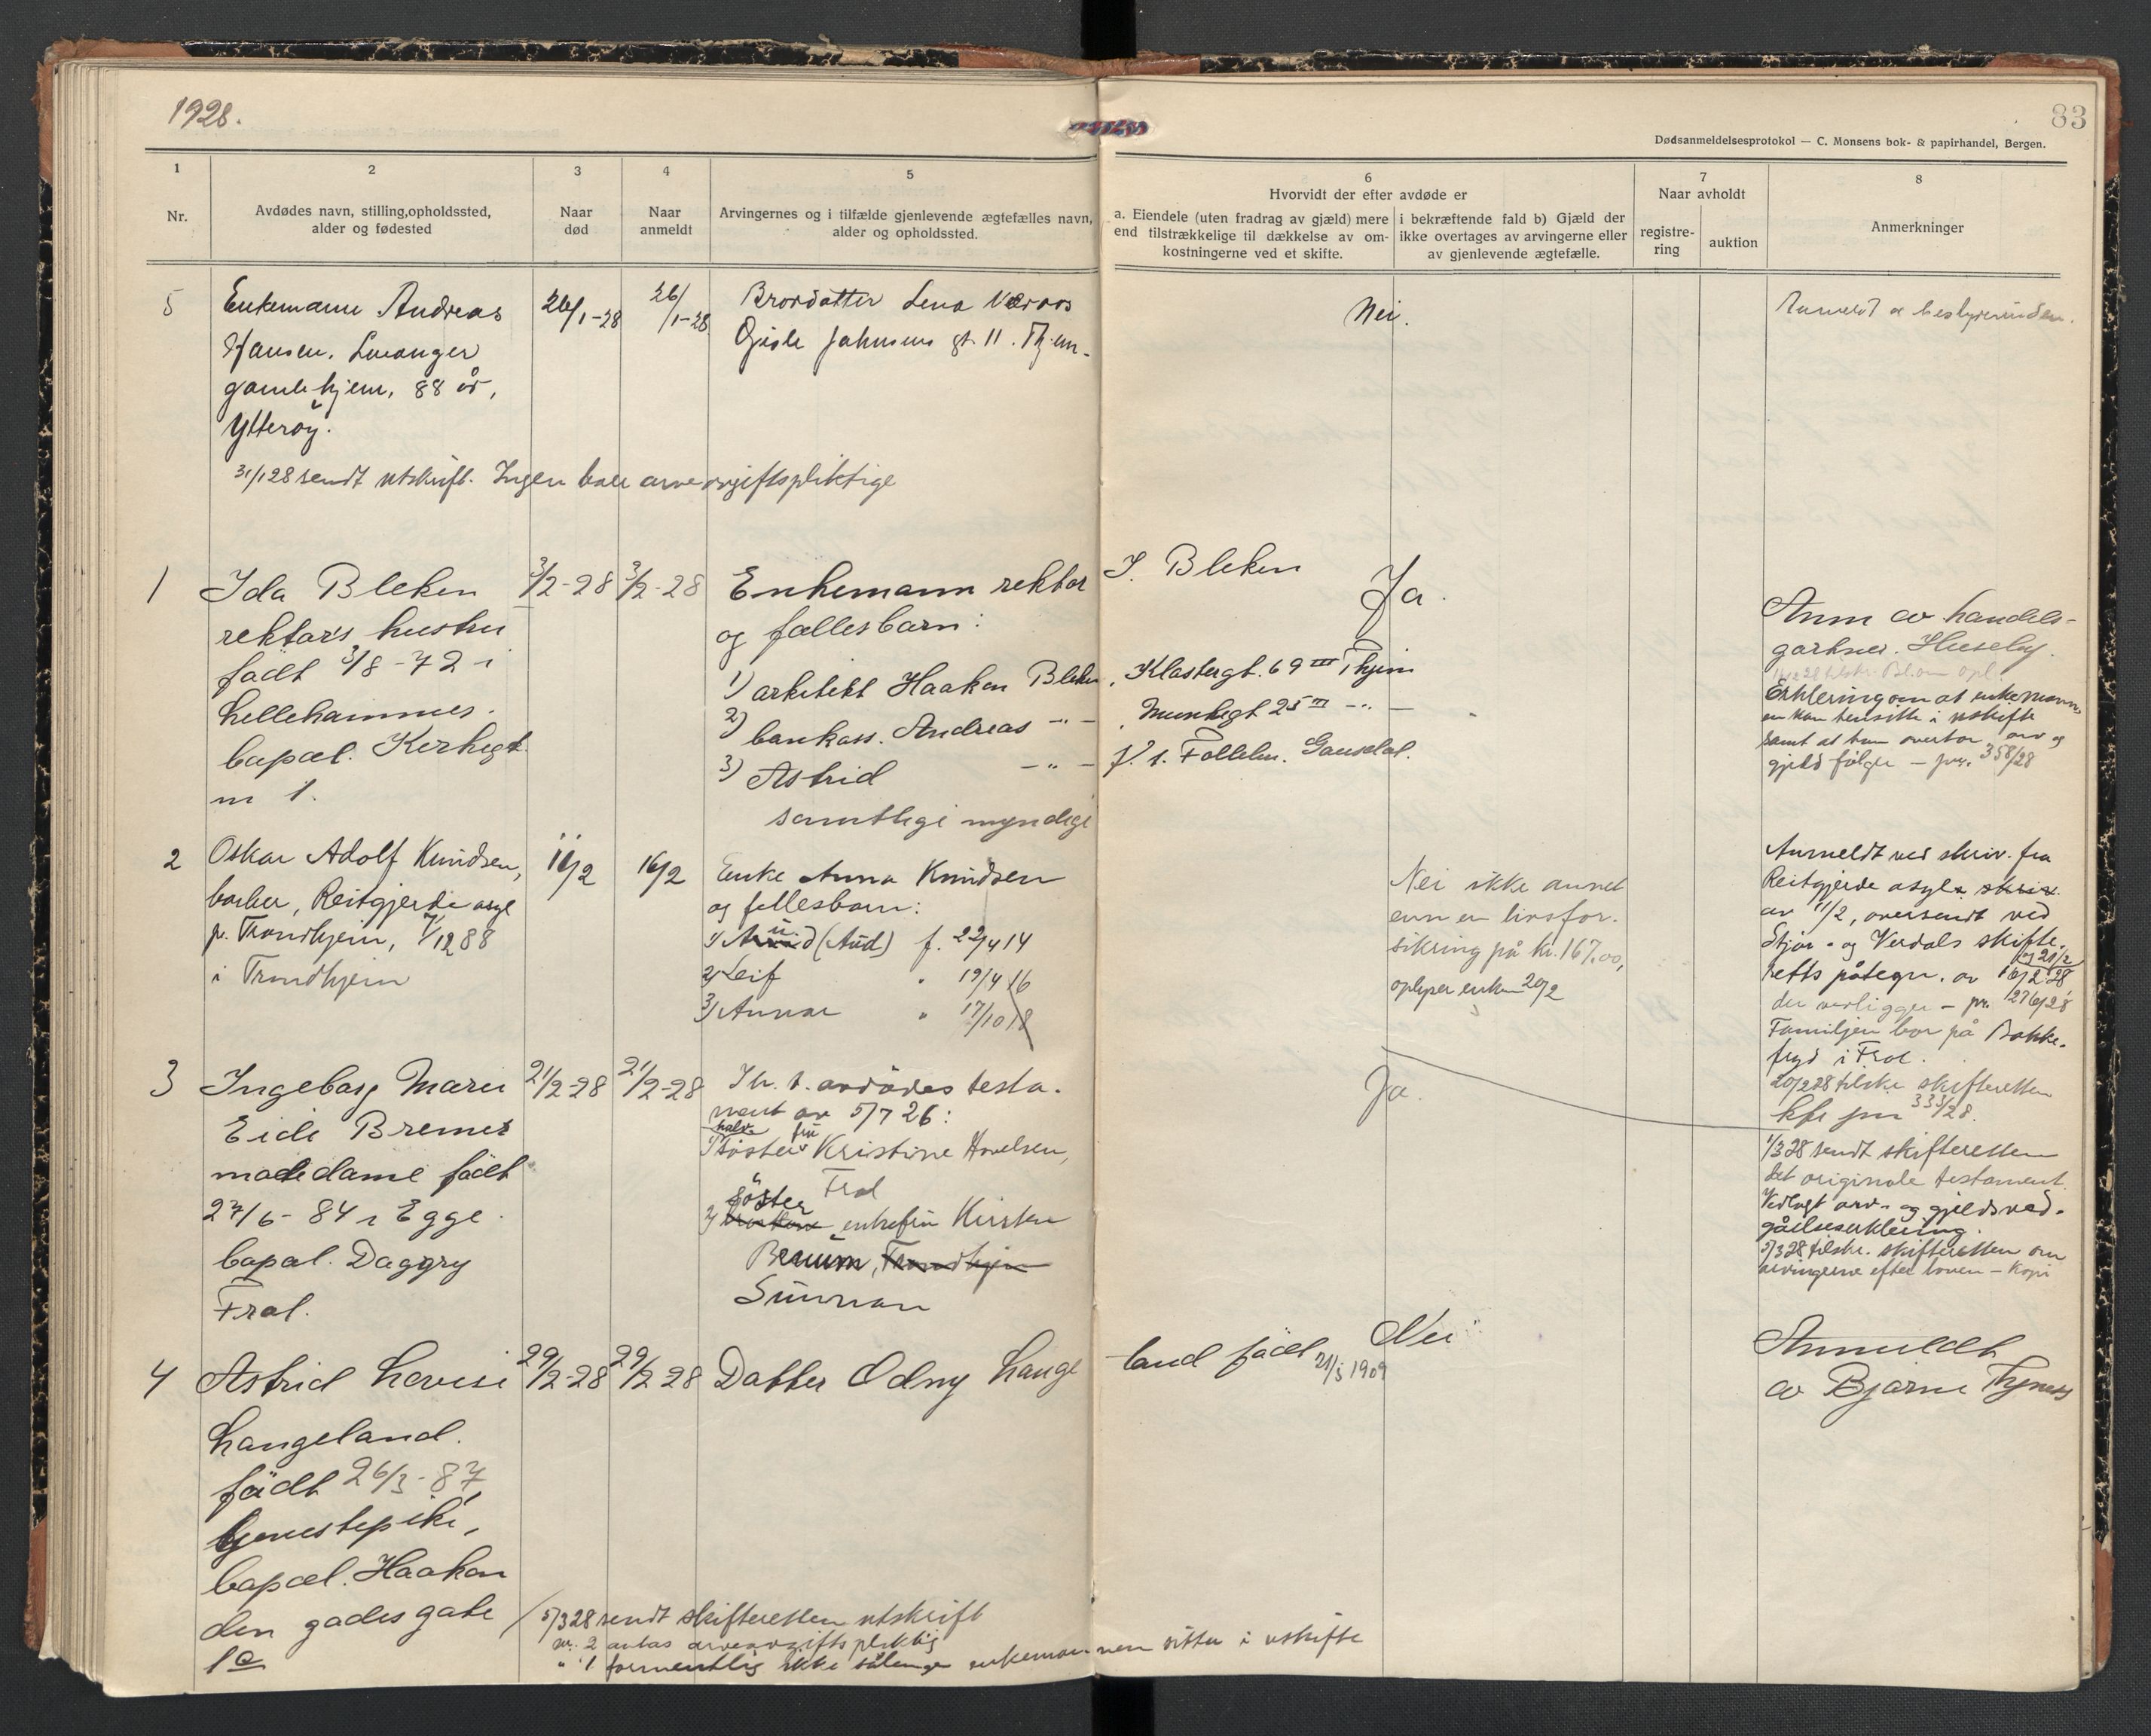 1928.
83
Dødsanmeldelsesprotokol — C. Monsens bok- & papirhandel, Bergen.
1
2
3
4
5
6
7
8
Nr.
Avdødes navn, stilling,opholdssted,
alder og fødested
Naar
død
Naar
anmeldt
Arvingernes og i tilfælde gjenlevende ægtefælles navn,
alder og opholdssted.
Hvorvidt der efter avdøde er
a. Eiendele (uten fradrag av gjæld) mere
end tilstrækkelige til dækkelse av om-
kostningerne ved et skifte.
i bekræftende fald b) Gjæld der
ikke overtages av arvingerne eller
av gjenlevende ægtefælle.
Naar avholdt
registre-
ring
auktion
Anmerkninger
5
Enkemann Andreas
Hansen. Levanger
gamlehjem, 88 år,
Ytterøy.
26/1-28
26/1-28
Brordatter Lena
Gisle Johnsens gt. 11. Thjem-
Nei.
Anmeldt a bestyrerinden.
31/1 28 sendt utskrift. Ingen bare arveavgiftspliktige
1
Ida Bleken
rektors hustru
født 3/8-72 i
Lillehammer.
bopæl. Kirkegt
nr 1.
3/2-28
3/2-28
Enkemann rektor J. Bleken
og fællesbarn:
1) arkitekt Haakon Bleken, Klostergt. 69 III Thjem
2) bankass. Andreas -"- , Munkegt 25 III -"-
3) Astrid -"- Follebu. Gausdal.
samtlige myndige
Ja.
Anm av handels-
gartner. Huseby.
Erklering om at enkemann
en kan hensitte i uskifte
samt at han overtar arv og
gjeld følger — jnr. 358/28
2
Oskar Adolf Knudsen,
barber, Reitgjerdi asyl
p. Trondhjem, 7/12 88
i Trondhjem
11/2
16/2
Enke Anna Knudsen
og fellesbarn:
1) (Aud) f. 22/4 14
2) Leif " 19/4 16
3) Annar " 17/10 18
Nei ikke annet
enn en livsfor-
sikring på kr. 167.00,
oplyser enken 20/2
Anmeldt ved skriv. fra
Reitgjerde asyl skriv.
av 11/2, oversendt ved
Stjør- og Verdals skifte-
og 21/2
retts påtegn. av 16/2 28
der vedligger — jnr. 276/28
Familjen bor på Bakke-
fryd i Frol.
20/2 28 tilskr. skifteretten
kfr jnr 333/28.
3
Ingeborg Marie
Eide Bremer
motedame født
27/6-84 i Egge.
bopæl. Daggry
Frol.
21/2-28
21/2-28
Ih. t. avdødes testa-
ment av 5/7 26:
halv- fru
1) søster Kristine Hovelsen,
Frol
søster
2) enkefru Kirsten
Trondhjem
Sunnan
Ja.
1/3 28 sendt skifteretten
det originale testament.
Vedlagt arv- og gjeldsved-
gåelseserklering.
5/3 28 tilskr. skifteretten om
arvingerne efter loven — kopi
4
Astrid Lovise
Langeland.
født 26/3-87,
tjenestepike,
bopæl. Haakon
den godes gate
1a
29/2-28
29/2-28
Datter Odny Langeland født 21/5 1909
Nei
Anmeldt
av Bjarne Thynes
5/3 28 sendt skifteretten utskrift
nr. 2 antas arveavgiftspliktig
" 1 formentlig ikke sålenge enkemannen sitter i uskifte